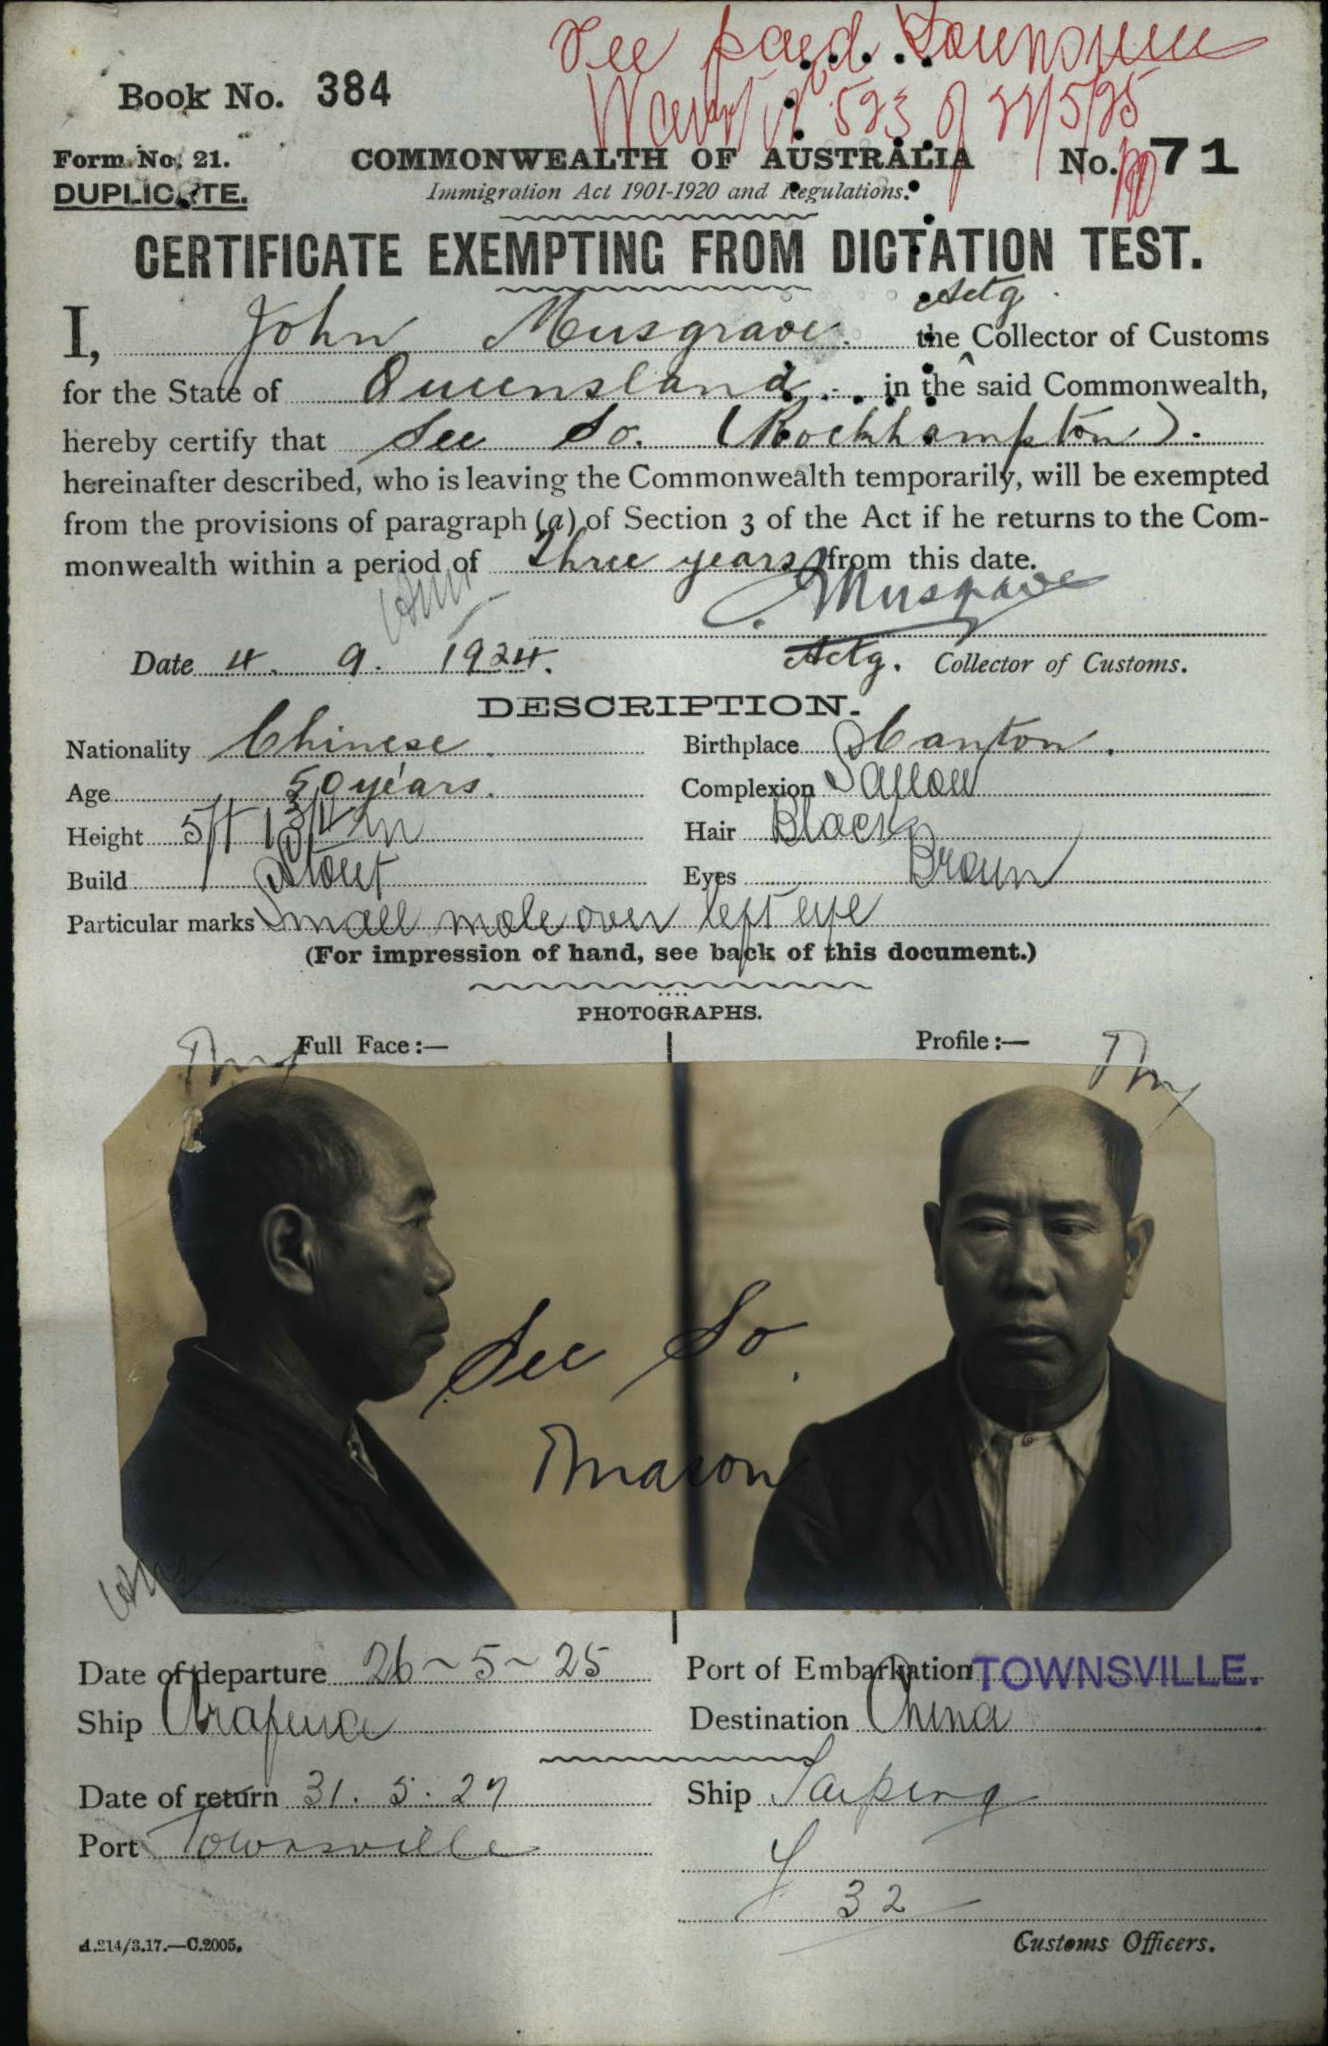 Fee paid Townsville
Warrt No 523 of 22/5/25
Book No. 384
Form No. 21.
COMMONWEALTH OF AUSTRALIA
No. 71
DUPLICATE.
Immigration Act 1901-1920 and Regulations.
CERTIFICATE EXEMPTING FROM DICTATION TEST.
Actg
I, John Musgrave the Collector of Customs
for the State of Queensland in the said Commonwealth,
hereby certify that See So. (Rockhampton).
hereinafter described, who is leaving the Commonwealth temporarily, will be exempted
from the provisions of paragraph (a) of Section 3 of the Act if he returns to the Com-
monwealth within a period of three years from this date.
Musgrave
Date 4. 9. 1924. Actg. Collector of Customs.
DESCRIPTION.
Nationality Chinese. Birthplace Canton.
Age 50 years. Complexion Sallow
Height 5ft 1 3/4 in Hair Black
Build Stout Eyes Brown
Particular marks Small mole over left eye
(For impression of hand, see back of this document.)
PHOTOGRAPHS.
Full Face:— Profile:—
See So.
Mason
Date of departure 26-5-25 Port of Embarkation TOWNSVILLE.
Ship Arafura Destination China
Date of return 31.5.27 Ship Taiping
Port Townsville
32
A.214/3.17.—C.2005. Customs Officers.